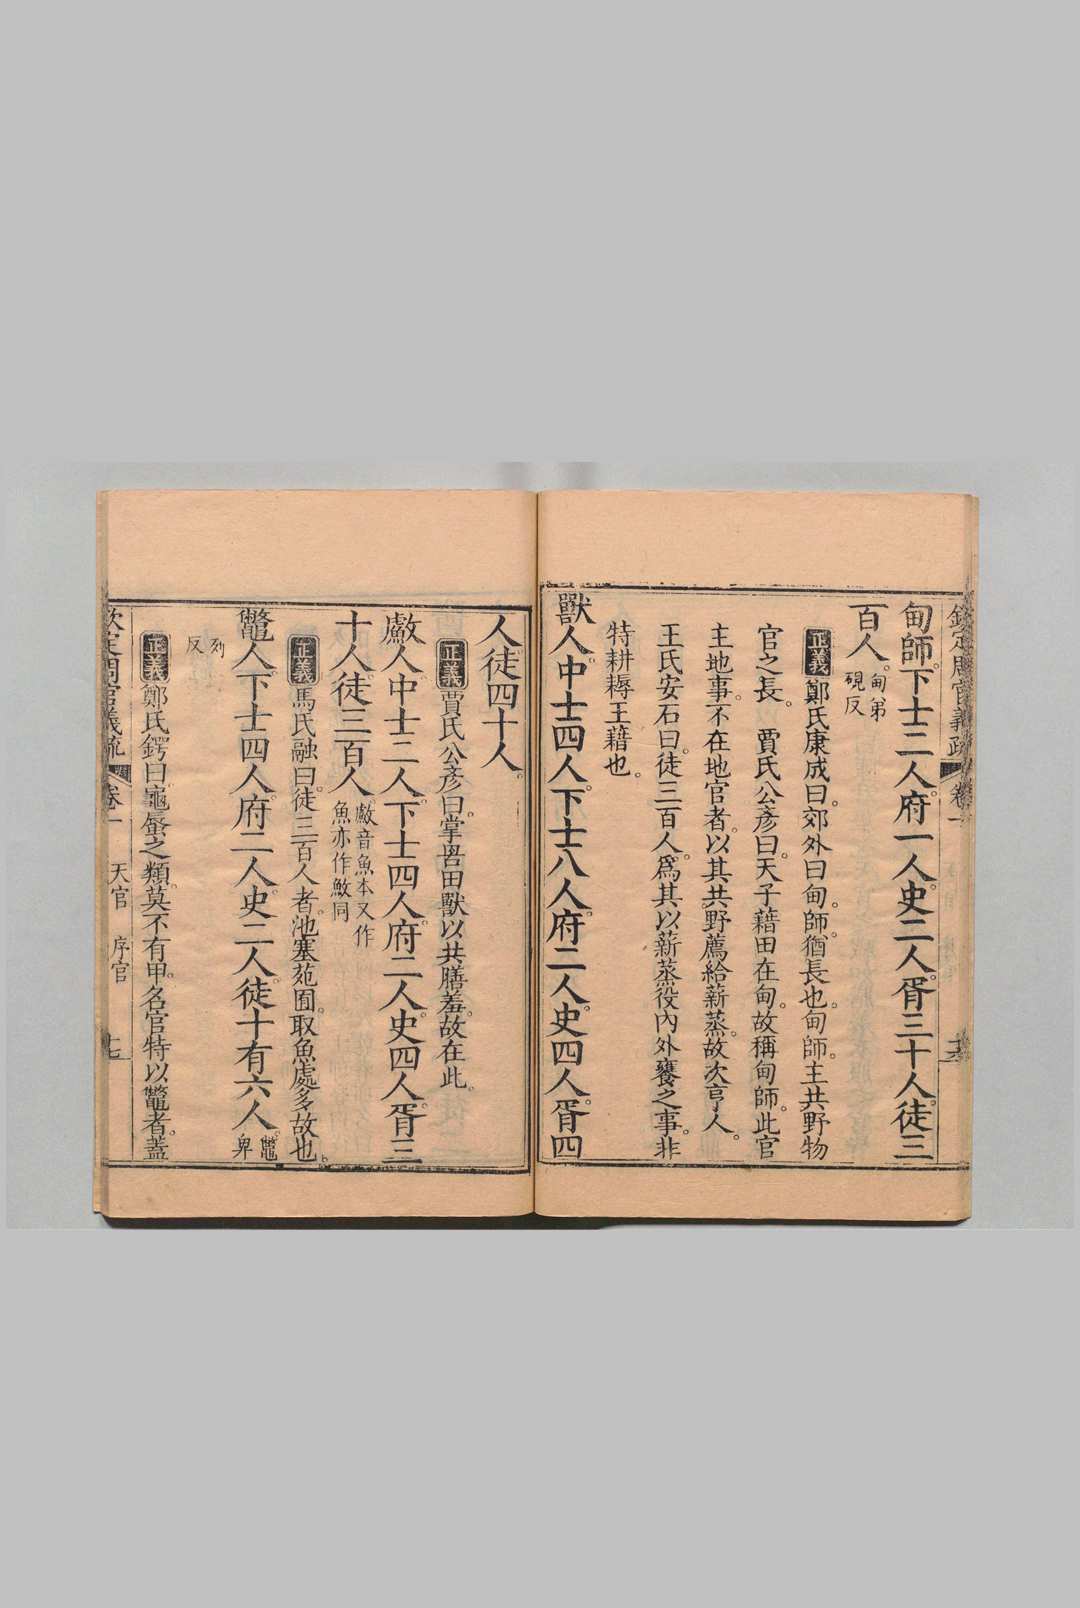 欽定周官義疏 卷一
甸師。下士二人。府一人。史二人。胥三十人。徒三
百人。甸弟
硯反
正義鄭氏康成曰。郊外曰甸。師猶長也。甸師。主共野物
官之長。 賈氏公彥曰。天子藉田在甸。故稱甸師。此官
主地事。不在地官者。以其共野薦給薪蒸。故次亨人。
王氏安石曰。徒三百人。爲其以薪蒸役內外饔之事。非
特耕耨王藉也。
獸人。中士四人。下士八人。府二人。史四人。胥四
人。徒四十人。
正義賈氏公彥曰。掌罟田獸。以共膳羞。故在此。
䱷人。中士二人。下士四人。府二人。史四人。胥三
十人。徒三百人。䱷音魚本又作
魚亦作䱷同
正義馬氏融曰。徒三百人者。池塞苑囿。取魚處多故也。
鼈人。下士四人。府二人。史二人。徒十有六人。鼈卑
列
反
正義鄭氏鍔曰。龜蜃之類。莫不有甲。名官特以鼈者。蓋
欽定周官義疏 卷一 天官 序官 七